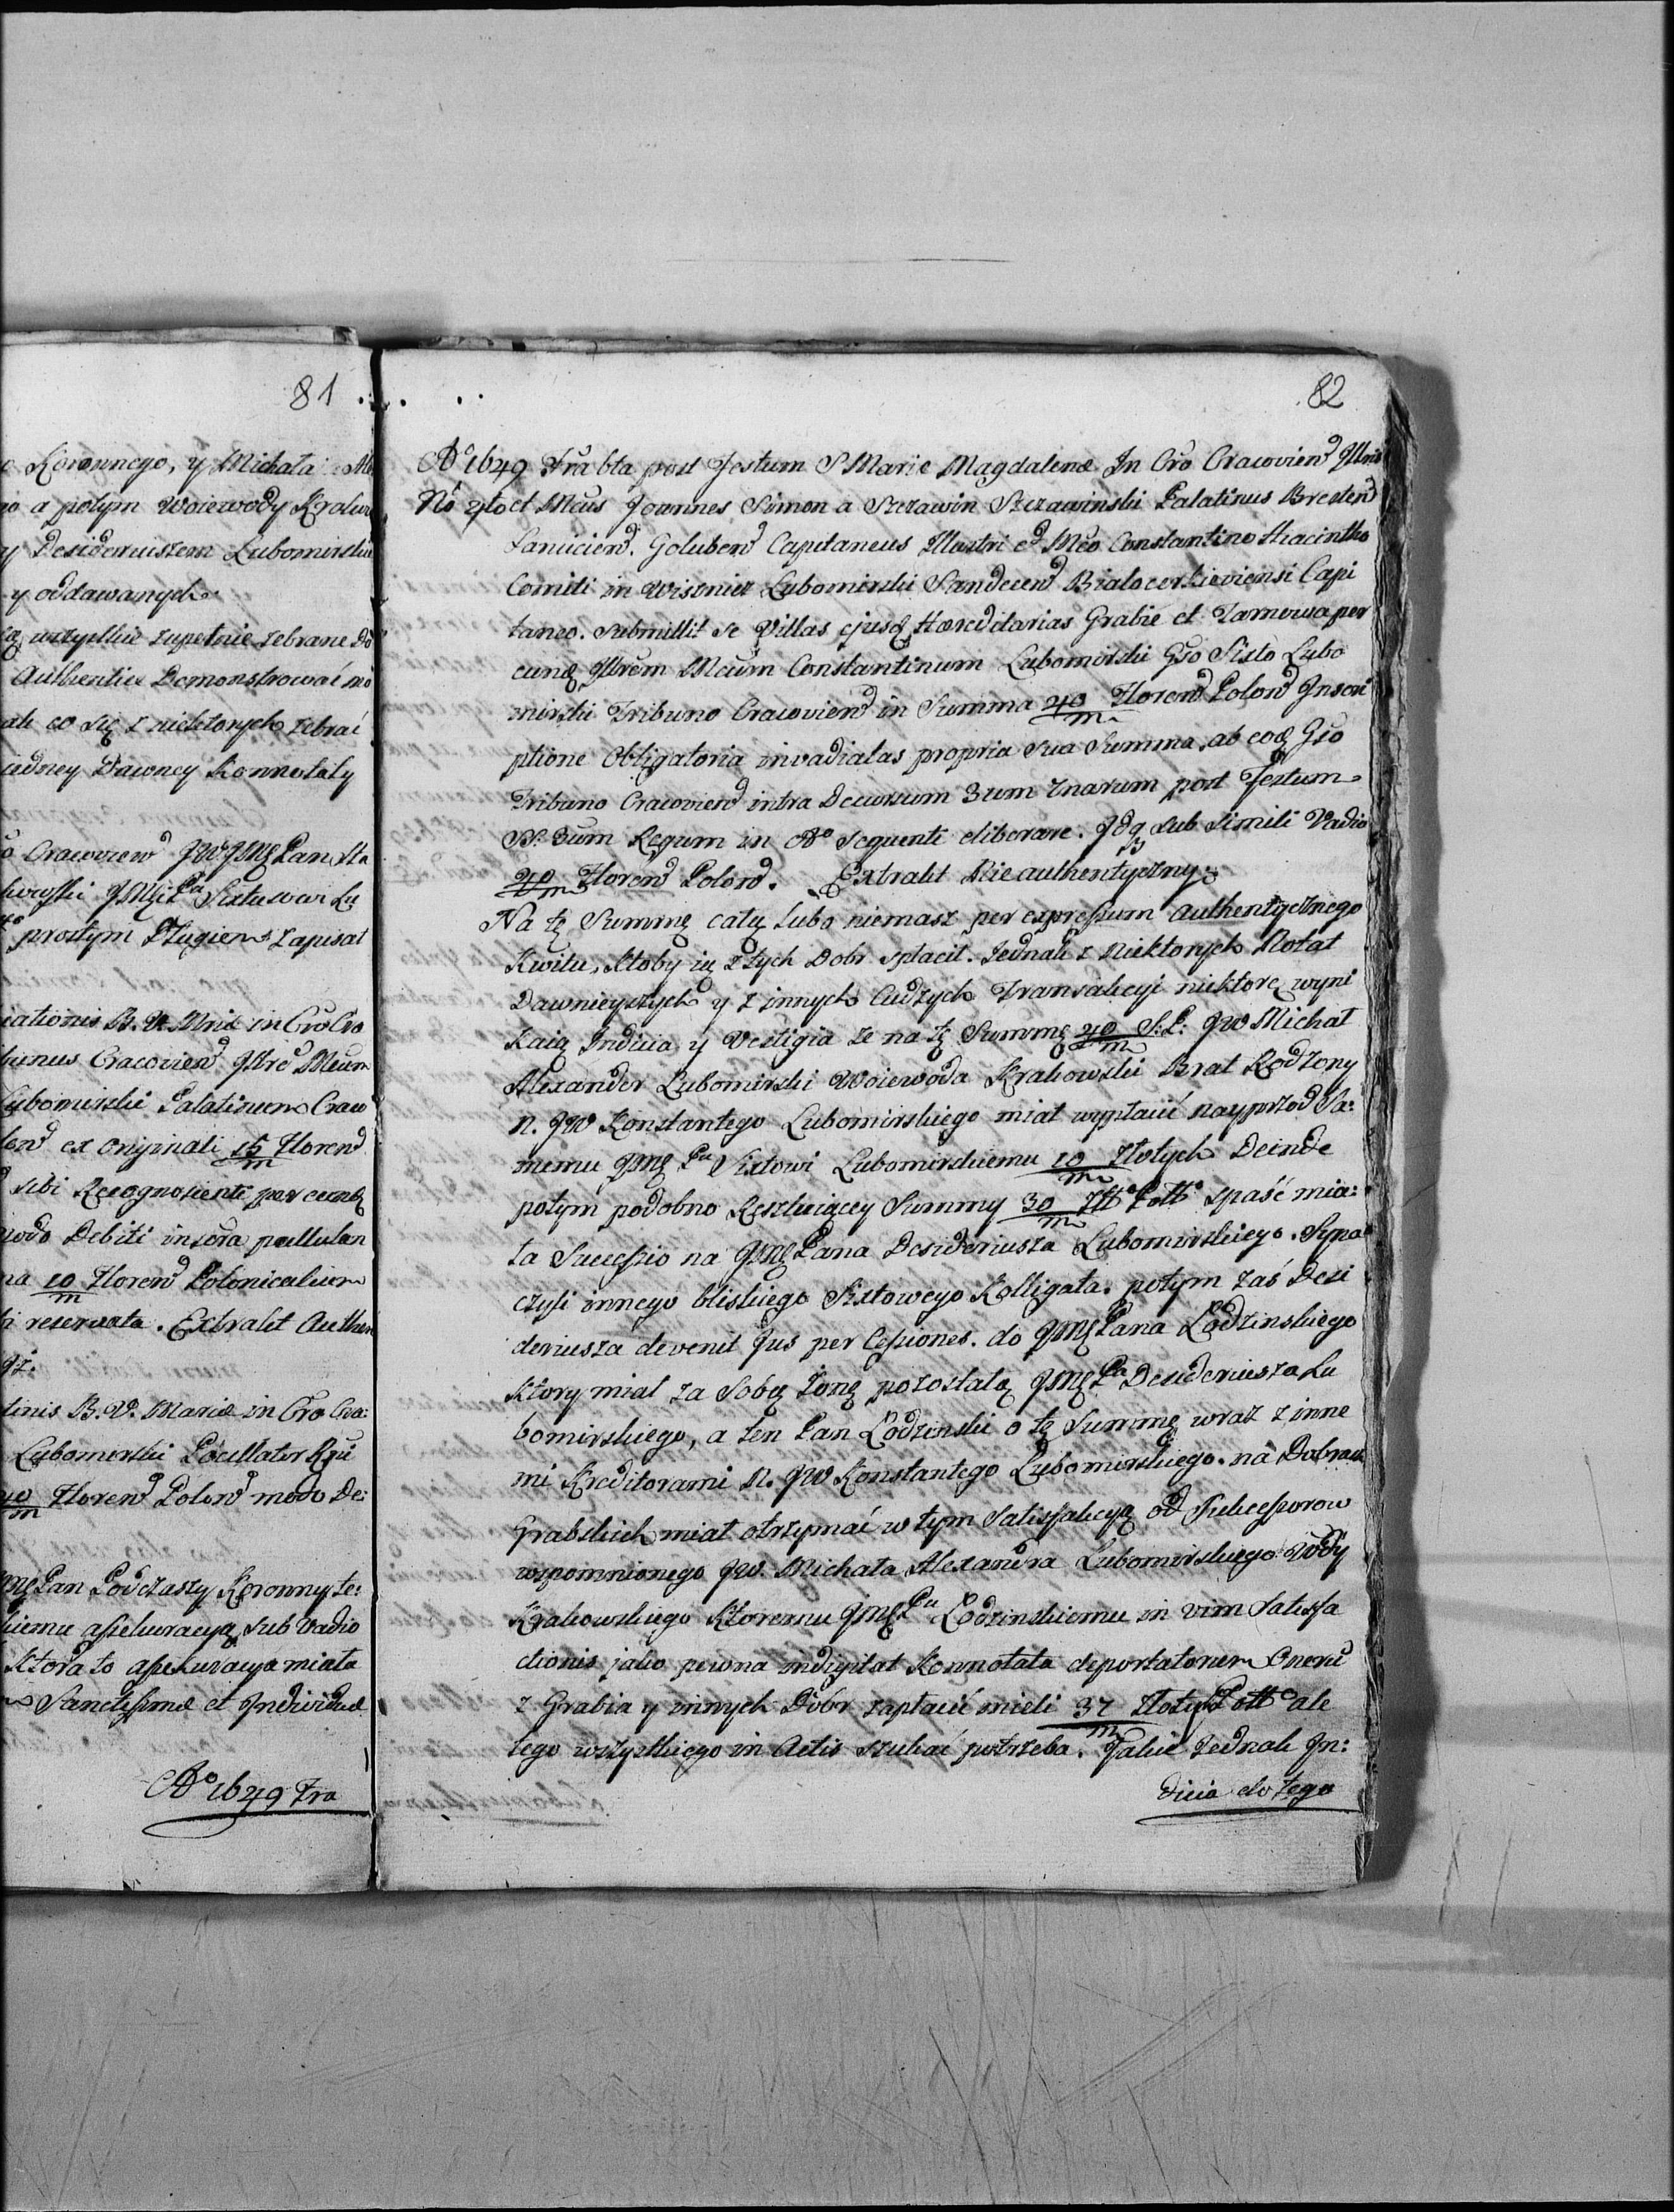 81
o Koronnego, y Michała Ale
go a potym Woiewody Krakow
y Desideriuszem Lubomirskie
y oddawanych
są wszystkie zupełnie zebrane Do
Authentice Demonstrować mo
ak co się z niektorych zebrać
iedney Dawney Konnotaty
o Cracovien JWJMę Pan Sta
kowski JMęć Pu Sixtusowi Lu
prostym Długiem zapisał
icationis B. V. Mriæ in Cro Cra
bunus Cracovien Illre Meum
Lubomirski Palatinum Crac
lon ex originali 15/m Floren
sibi Recognoscenti per eumq
modo Debiti inscra pullulan
na 10/m Floren Polonicalium
i reservata. Extrakt Authen
tinis B. V. Mariæ in Cro Cra:
Lubomirski Pocillator Rgni
40/m Floren Polon modo De:
JMę Pan Podczaszy Koronny te:
kiemu assekuracyą sub Vadio
ktora to assekuracya miała
Sanctissimæ et Individuæ
Ao 1649 Fra
82
Ao 1649 Fra 6ta post Festum S Mariæ Magdalenæ In Cro Cracovien Illris
No 4to et Mcus Joannes Simon a Szczawin Szczawinski Palatinus Bresten
Lanucien. Goluben Capitaneus Illustri et Mco Constantino Hiacintho
Comiti in Wisnicz Lubomirski Sandecen Bialocerkieviensi Capi
taneo. Submittit se Villas ejusq Hæreditarias Grabie et Tarnowa per
eunq Illrem Mcum Constantinum Lubomirski Gso Sixto Lubo
mirski Tribuno Cracovien in Summa 40/m Floren Polon Inscri
ptione Obligatoria invadiatas propria sua Summa, ab eoq Gso
Tribuno Cracovien intra Decursum 3um 7narum post Festum
SS. 3um Regum in Ao sequenti eliberare. Idq sub simili Vadio
40/m Floren Polon. Extrakt Nieauthentyczny
Na tę Summę całą lubo niemasz per expressum authentycznego
Kwitu, ktoby ią z tych Dobr spłacił. Jednak z niektorych Notat
Dawnieyszych y z innych cudzych Transakcyi niektore wyni
kaią Indicia y Vestigia że na tę Summę 40/m S.P. JW Michał
Alexander Lubomirski Woiewoda Krakowski Brat Rodzony
n. JW Konstantego Lubomirskiego miał wypłacić nayprzod Sa:
memu JMę Pu Sixtowi Lubomirskiemu 10/m złotych Deinde
potym podobno Resztuiącey Summy 30/m Złł Pollo spaść mia:
ła Successio na JMę Pana Desideriusza Lubomirskiego. Syna
czyli innego bliskiego Sixtowego Kolligata. potym zaś Desi
deriusza devenit Jus per Cessiones. do JMę Pana Łodzinskiego
ktory miał za Sobą żonę pozostałą JMę Pa Desideriusza Lu
bomirskiego, a ten Pan Łodzinski o tę Summę wraz z inne
mi Kreditorami n. JW Konstantego Lubomirskiego. na Dobrach
Grabskich miał otrzymać w tym Satisfakcyą od Sukcessorow
wspomnionego JW. Michała Alexandra Lubomirskiego Wdy
Krakowskiego ktoremu JMę Pu Łodzinskiemu in vim Satisfa
ctionis jako pewna indigitat Konnotata deportatorum Onerũ
z Grabia y innych Dobr zapłacić mieli 37/m złotych Pollo ale
tego wszystkiego in Actis szukać potrzeba. Takie Jednak In:
dicia do tego